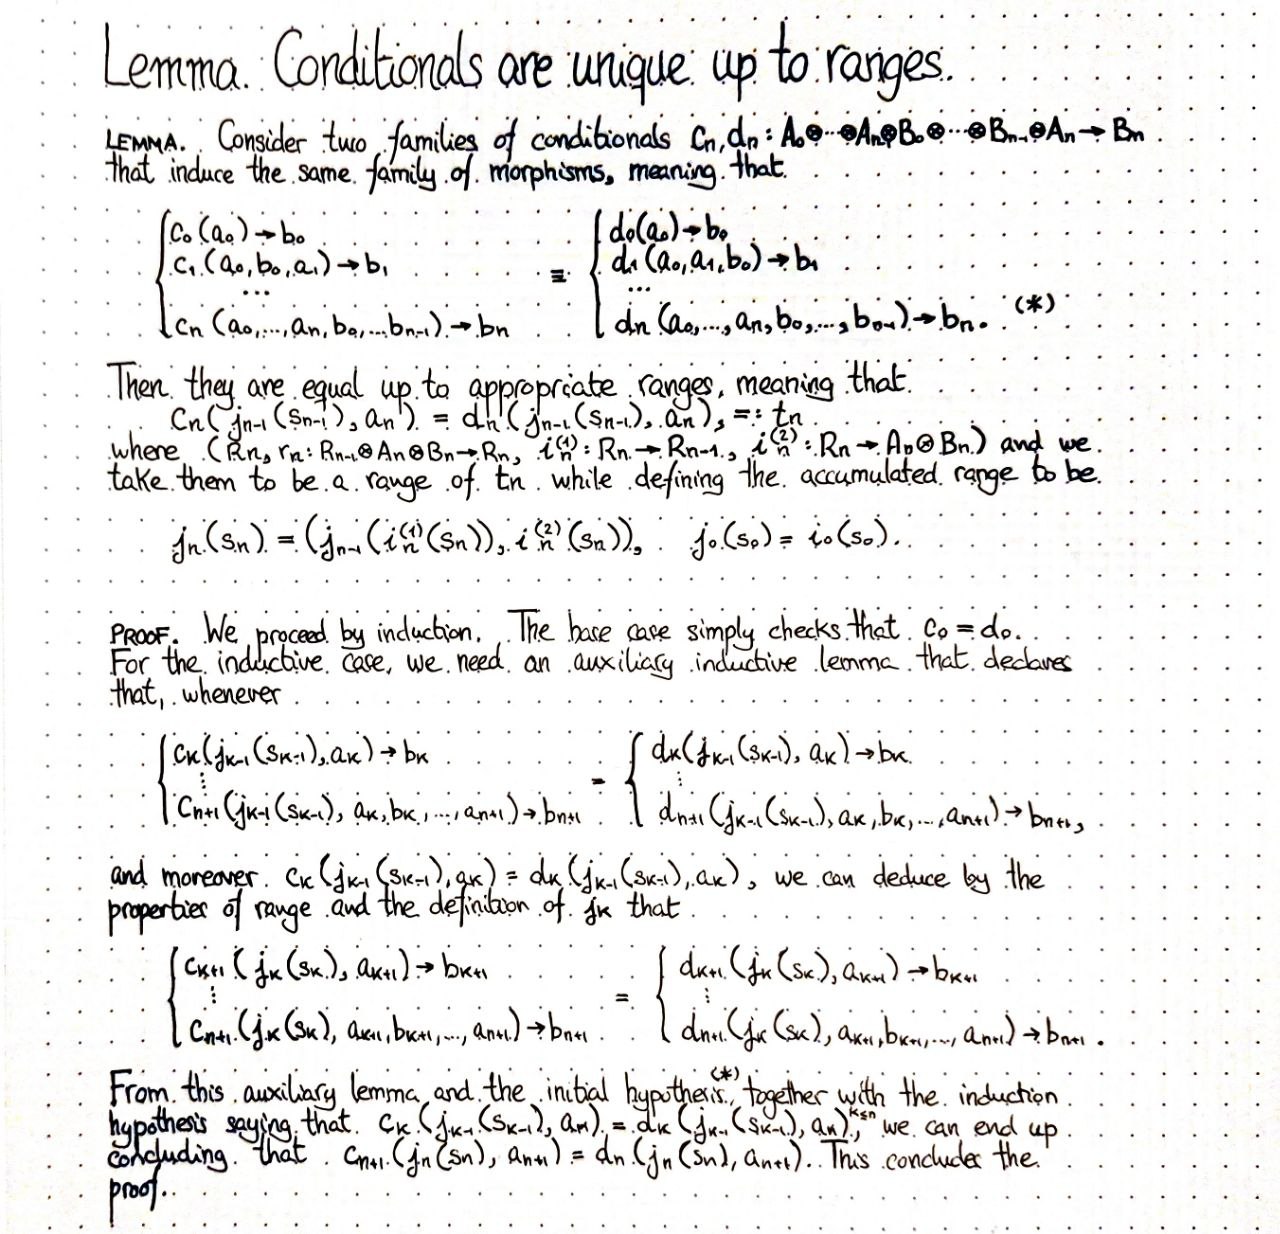 Lemma. Conditionals are unique up to ranges.
LEMMA. Consider two families of conditionals cn, dn : A₀⊗···⊗An⊗B₀⊗···⊗Bn-1⊗An → Bn
that induce the same family of morphisms, meaning that
{ c₀(a₀) → b₀ ≡ { d₀(a₀) → b₀
c₁(a₀, b₀, a₁) → b₁ d₁(a₀, a₁, b₀) → b₁
... ...
cn(a₀, ..., an, b₀, ... bn-1) → bn dn(a₀, ..., an, b₀, ..., b₀-₁) → bn. (*)
Then they are equal up to appropriate ranges, meaning that
cn(jn-1(sn-1), an) = dn(jn-1(sn-1), an), =: tn
where (Rn, rn : Rn-1⊗An⊗Bn → Rn, in⁽¹⁾ : Rn → Rn-1, in⁽²⁾ : Rn → An⊗Bn) and we
take them to be a range of tn while defining the accumulated range to be
jn(sn) = (jn-1(in⁽¹⁾(sn)), in⁽²⁾(sn)), j₀(s₀) = i₀(s₀).
PROOF. We proceed by induction. The base case simply checks that c₀ = d₀.
For the inductive case, we need an auxiliary inductive lemma that declares
that, whenever
{ cκ(jκ-1(sκ-1), aκ) → bκ = { dκ(jκ-1(sκ-1), aκ) → bκ
⋮ ⋮
cn+1(jκ-1(sκ-1), aκ, bκ, ..., an+1) → bn+1 dn+1(jκ-1(sκ-1), aκ, bκ, ..., an+1) → bn+1,
and moreover cκ(jκ-1(sκ-1), aκ) = dκ(jκ-1(sκ-1), aκ), we can deduce by the
properties of range and the definition of jκ that
{ cκ+1(jκ(sκ), aκ+1) → bκ+1 = { dκ+1(jκ(sκ), aκ+1) → bκ+1
⋮ ⋮
cn+1(jκ(sκ), aκ+1, bκ+1, ..., an+1) → bn+1 dn+1(jκ(sκ), aκ+1, bκ+1, ..., an+1) → bn+1.
From this auxiliary lemma and the initial hypothesis(*), together with the induction
hypothesis saying that cκ(jκ-1(sκ-1), an) = dκ(jκ-1(sκ-1), aκ), κ≤n we can end up
concluding that cn+1(jn(sn), an+1) = dn(jn(sn), an+1). This concludes the
proof.